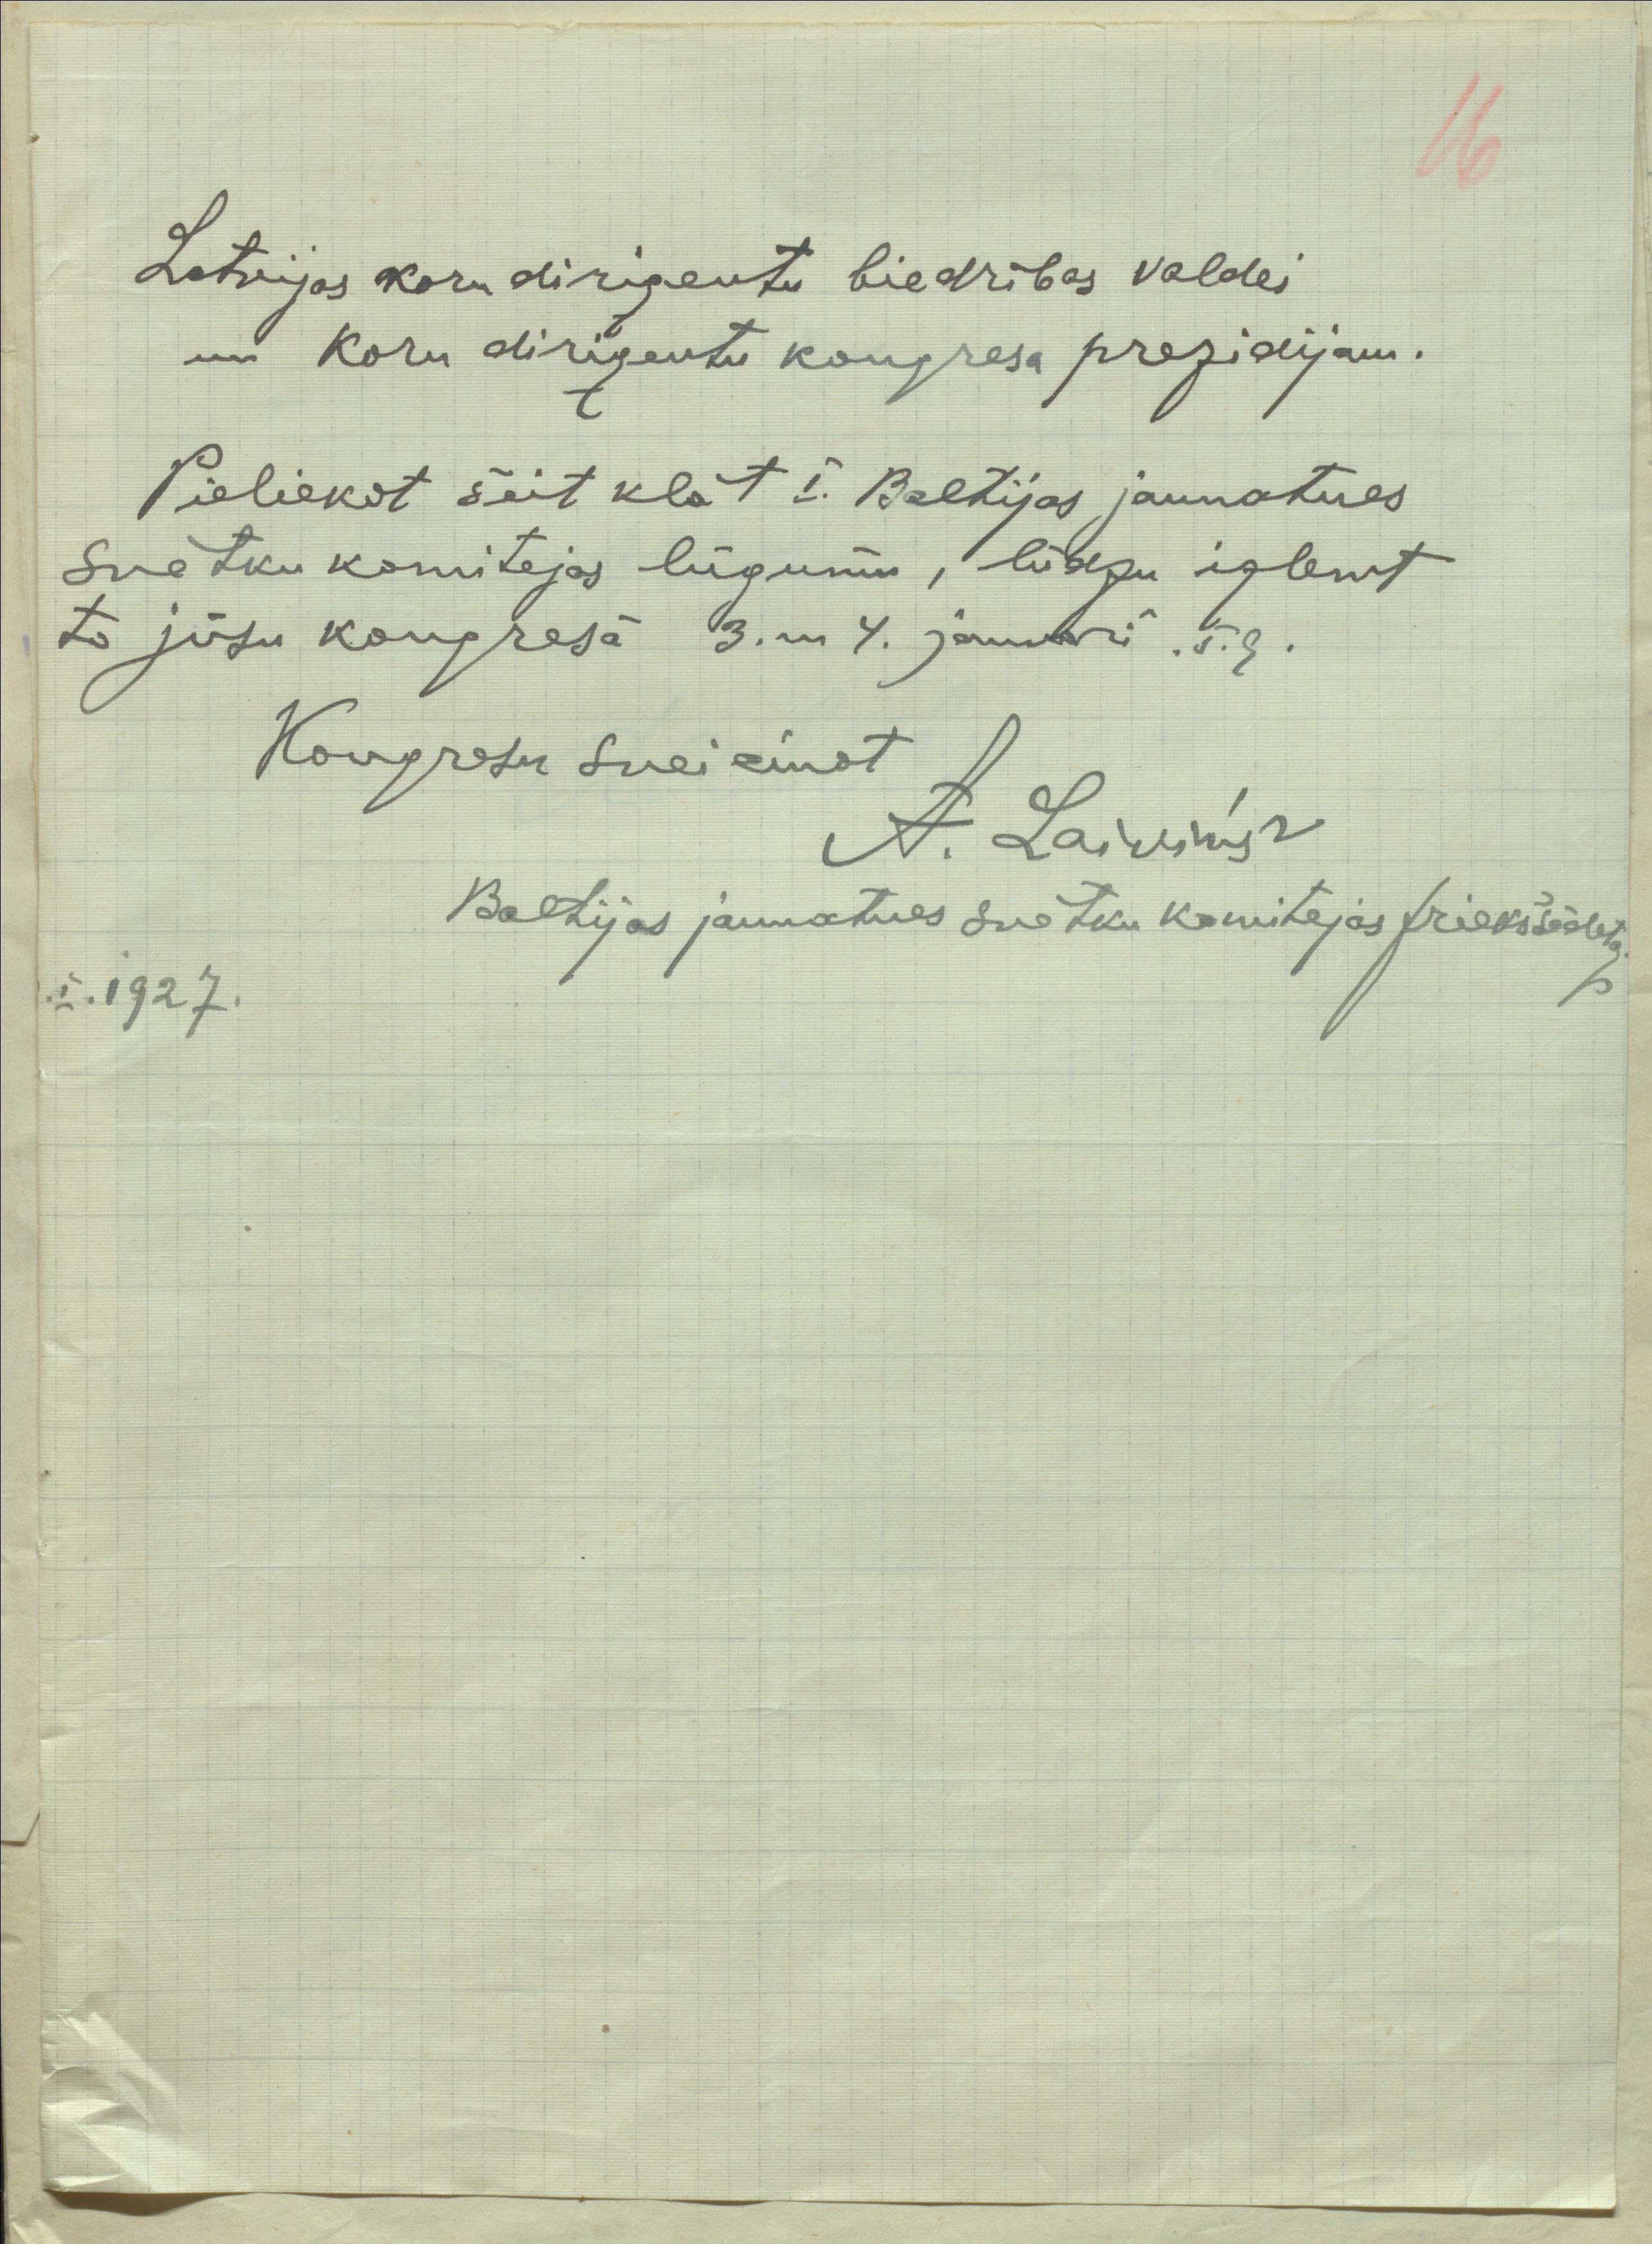 16
Latvijas koru dirigentu biedrības valdei
un koru dirigentu kongresa prezidijam.
Pieliekot šeit klāt I. Baltijas jaunatnes
svētku komitejas lūgumu, lūdzu izlemt
to jūsu kongresā 3. un 4. janvarī š.g.
Kongresu sveicinot
A.
Baltijas jaunatnes svētku komitejas priekšsēdētājs
.I.1927.